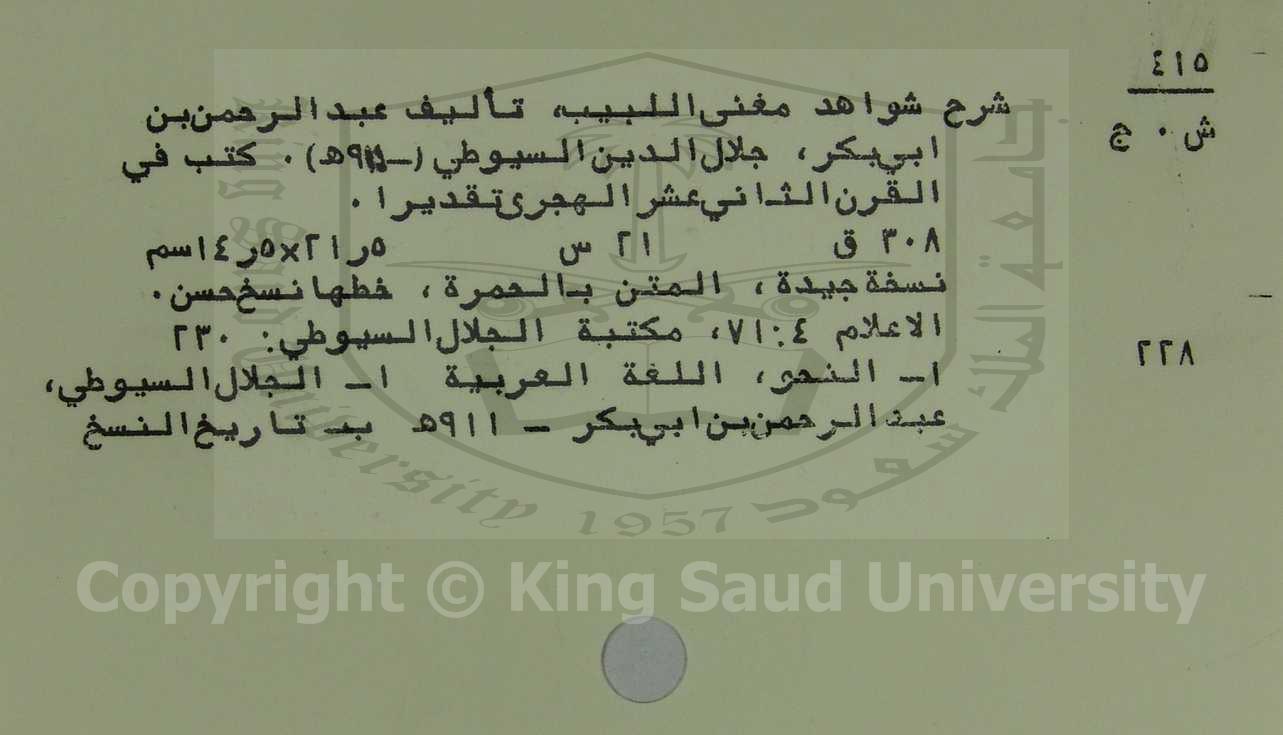 ٤١٥
ش ٠ ج
شرح شواهد مغنى اللبيب، تأليف عبد الرحمن بن
ابي بكر، جلال الدين السيوطي (-٩١١ه) ٠ كتب في
القرن الثاني عشر الهجرى تقديرا ٠
٣٠٨ ق ٢١ س ٥ر٢١×٥ر١٤سم
نسخة جيدة، المتن بالحمرة، خطها نسخ حسن.
الاعلام ٤:٧١، مكتبة الجلال السيوطي: ٢٣٠
٢٢٨
١- النحو، اللغة العربية ا- الجلال السيوطي،
عبد الرحمن بن ابي بكر - ٩١١ه ب- تاريخ النسخ
جامعة الملك سعود
King Saud University 1957
Copyright © King Saud University